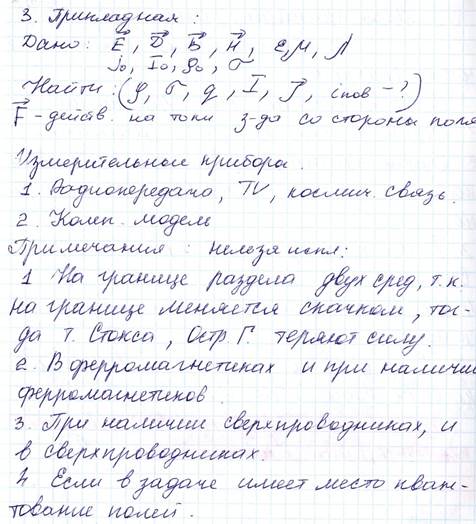 3. Прикладная:
Дано: E, D, B, H, ε, μ, λ
j₀, I₀, ρ₀, σ
Найти: (ρ, σ, q, I, j, iпов - ?)
F - действ. на токи з-да со стороны поля
Измерительные прибора.
1. Радиопередача, TV, космич. связь.
2. Комп. модел
Примечания: нельзя испл:
1 На границе раздела двух сред, т.к.
на границе меняется скачком, тог-
да т. Стокса, Остр Г. теряют силу.
2. В ферромагнетиках и при наличии
ферромагнетиков.
3. При наличии сверхпроводниках, и
в сверхпроводниках.
4 Если в задаче имеет место кван-
тование полей.